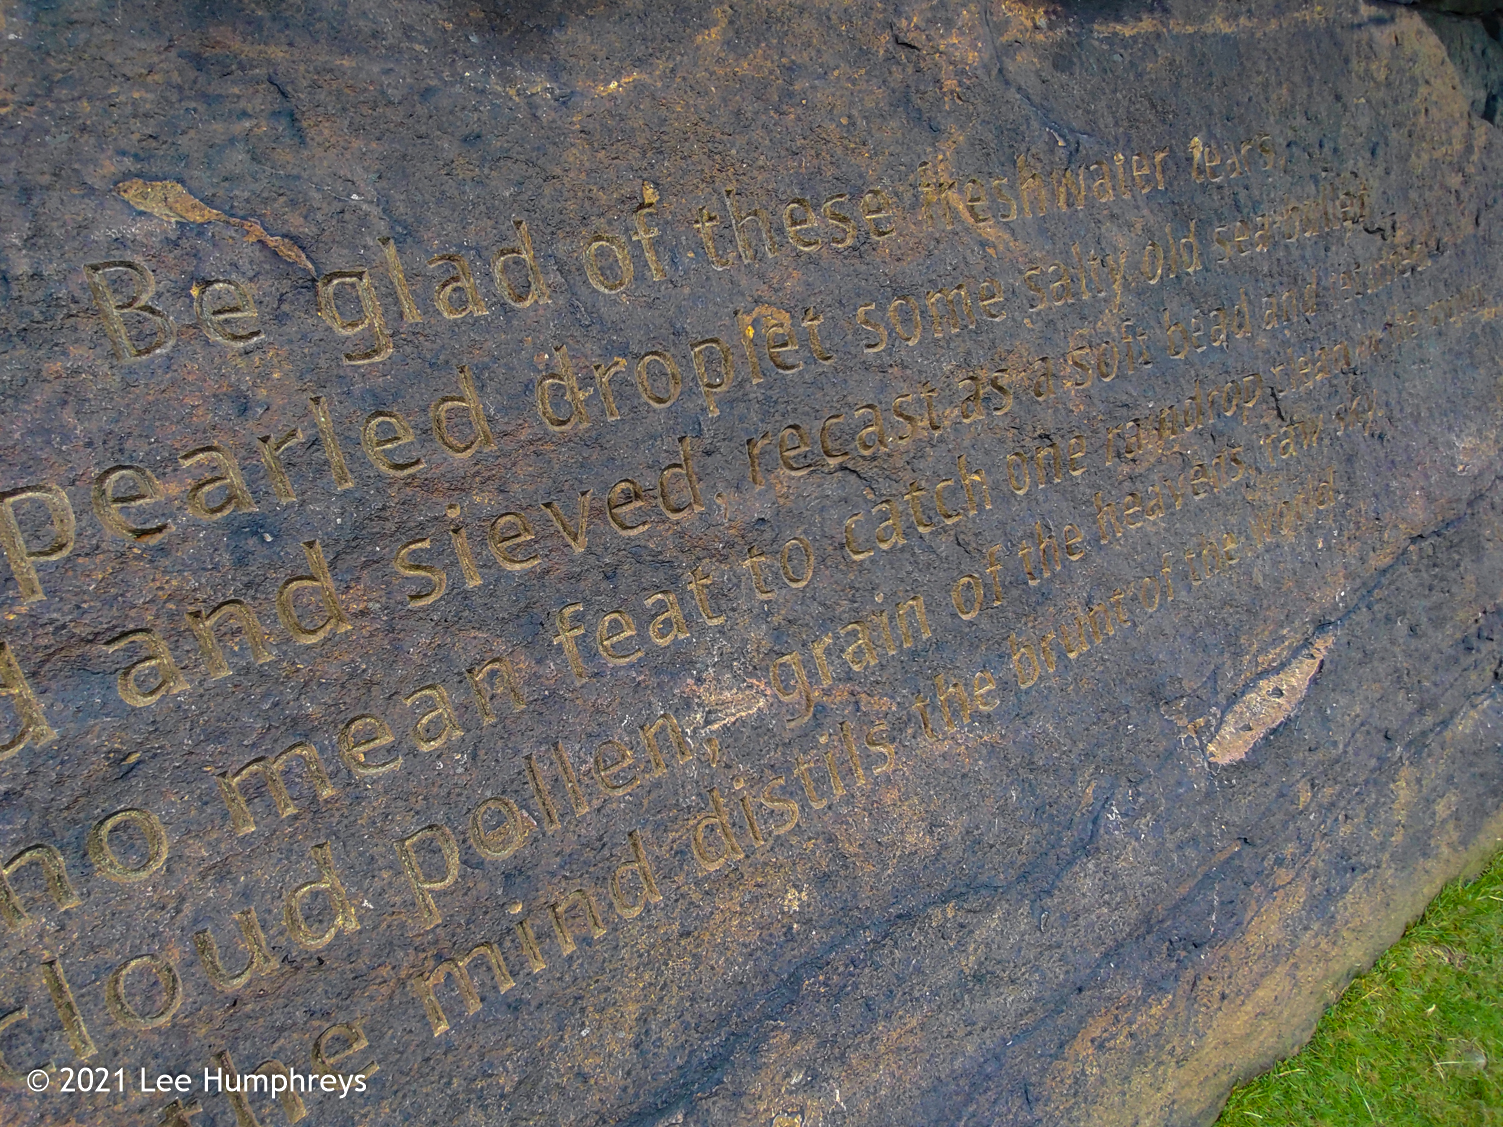 Be glad of these freshwater tears,
pearled droplet some salty old sea-bullet
d and sieved, recast as a soft bead and returned.
no mean feat to catch one raindrop clean in the mouth,
cloud pollen, grain of the heavens, raw sky.
the mind distils the brunt of the world.
© 2021 Lee Humphreys